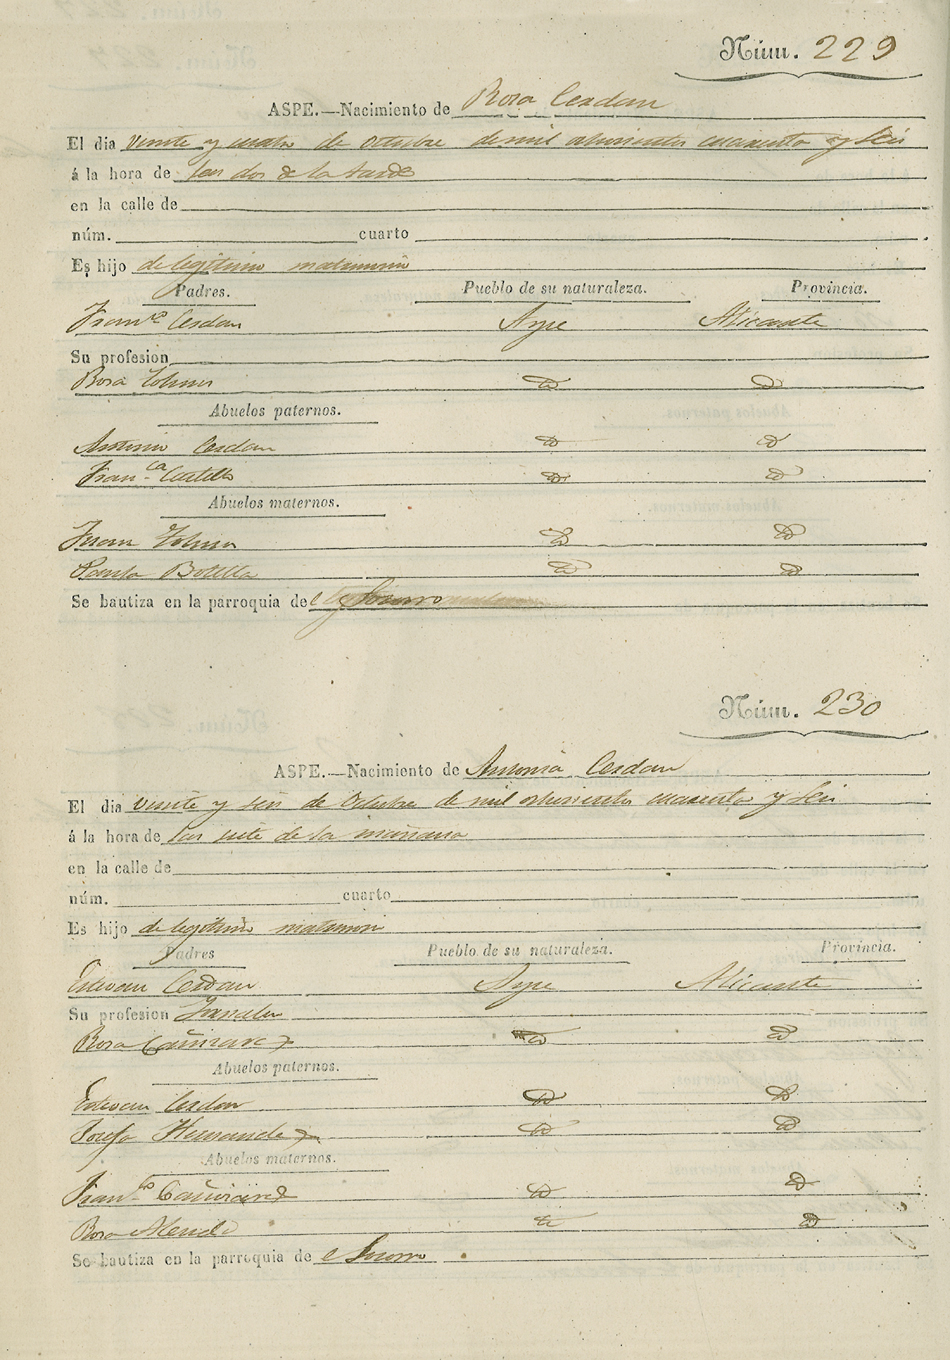 Núm. 229
ASPE.—Nacimiento de Rosa Cerdan
El dia veinte y cuatro de Octubre de mil ochocientos cuarenta y seis
á la hora de las dos de la tarde
en la calle de
núm. cuarto
Es hijo de legitimo matrimonio
Padres. Pueblo de su naturaleza. Provincia.
Fran.co Cerdan Aspe Alicante
Su profesion
Rosa
Abuelos paternos.
Antonio Cerdan
Fran.ca Castello
Abuelos maternos.
Juan
Botella
Se bautiza en la parroquia de el Socorro
Núm. 230
ASPE.—Nacimiento de Antonia Cerdan
El dia veinte y seis de Octubre de mil ochocientos cuarenta y seis
á la hora de las siete de la mañana
en la calle de
núm. cuarto
Es hijo de legitimo matrimon
Padres Pueblo de su naturaleza. Provincia.
Estevan Cerdan Aspe Alicante
Su profesion
Rosa Cañizares
Abuelos paternos.
Estevan Cerdan
Josefa Hernandez
Abuelos maternos.
Fran.co Cañizares
Rosa
Se bautiza en la parroquia de el Socorro